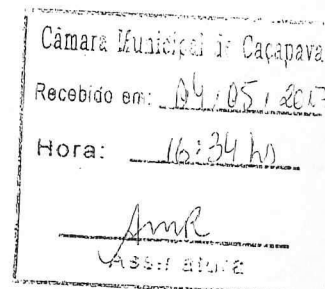 Câmara Municipal de Caçapava
Recebido em: 04/05/2017
Hora: 16:34 hs
Assinatura